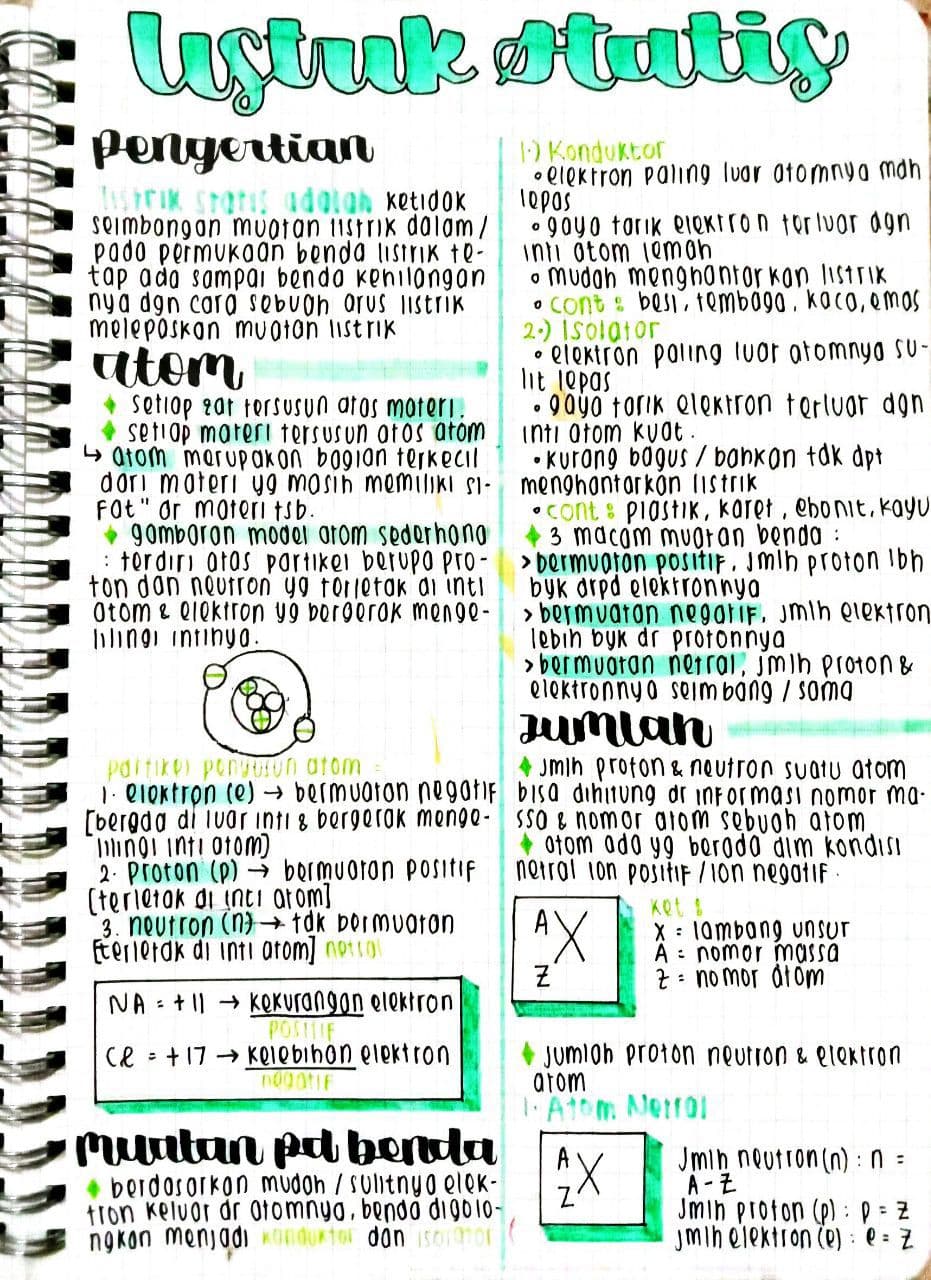 Listrik Statis
pengertian
listrik statis adalah ketidak
seimbangan muatan listrik dalam /
pada permukaan benda listrik te-
tap ada sampai benda kehilangan
nya dgn cara sebuah arus listrik
melepaskan muatan listrik
atom
♦ setiap zat tersusun atas materi.
♦ setiap materi tersusun atas atom
↳ atom merupakan bagian terkecil
dari materi yg masih memiliki si-
fat" dr materi tsb.
♦ gambaran model atom sederhana
: terdiri atas partikel berupa pro-
ton dan neutron yg terletak di inti
atom & elektron yg bergerak menge-
lilingi intinya.
− +
+ −
partikel penyusun atom =
1. elektron (e) → bermuatan negatif
[berada di luar inti & bergerak menge-
lilingi inti atom]
2. Proton (p) → bermuatan positif
[terletak di inti atom]
3. neutron (n) → tdk bermuatan
[terletak di inti atom] netral
NA = +11 → kekurangan elektron
POSITIF
Cl = +17 → kelebihan elektron
negatif
muatan pd benda
♦ berdasarkan mudah / sulitnya elek-
tron keluar dr atomnya, benda digolo-
ngkan menjadi konduktor dan isolator
1.) Konduktor
• elektron paling luar atomnya mdh
lepas
• gaya tarik elektron terluar dgn
inti atom lemah
• mudah menghantarkan listrik
• cont : besi, tembaga, kaca, emas
2.) Isolator
• elektron paling luar atomnya su-
lit lepas
• gaya tarik elektron terluar dgn
inti atom kuat.
• kurang bagus / bahkan tdk dpt
menghantarkan listrik
• cont : plastik, karet, ebonit, kayu
♦ 3 macam muatan benda :
> bermuatan positif, jmlh proton lbh
byk drpd elektronnya
> bermuatan negatif, jmlh elektron
lebih byk dr protonnya
> bermuatan netral, jmlh proton &
elektronnya seimbang / sama
Jumlah
♦ jmlh proton & neutron suatu atom
bisa dihitung dr informasi nomor ma-
ssa & nomor atom sebuah atom
♦ atom ada yg berada dlm kondisi
netral ion positif / ion negatif.
A X
Z
ket :
X = lambang unsur
A = nomor massa
Z = nomor atom
♦ jumlah proton neutron & elektron
atom
1. Atom Netral
A X
Z
Jmlh neutron (n) : n =
A - Z
Jmlh proton (p) : p = Z
jmlh elektron (e) : e = Z